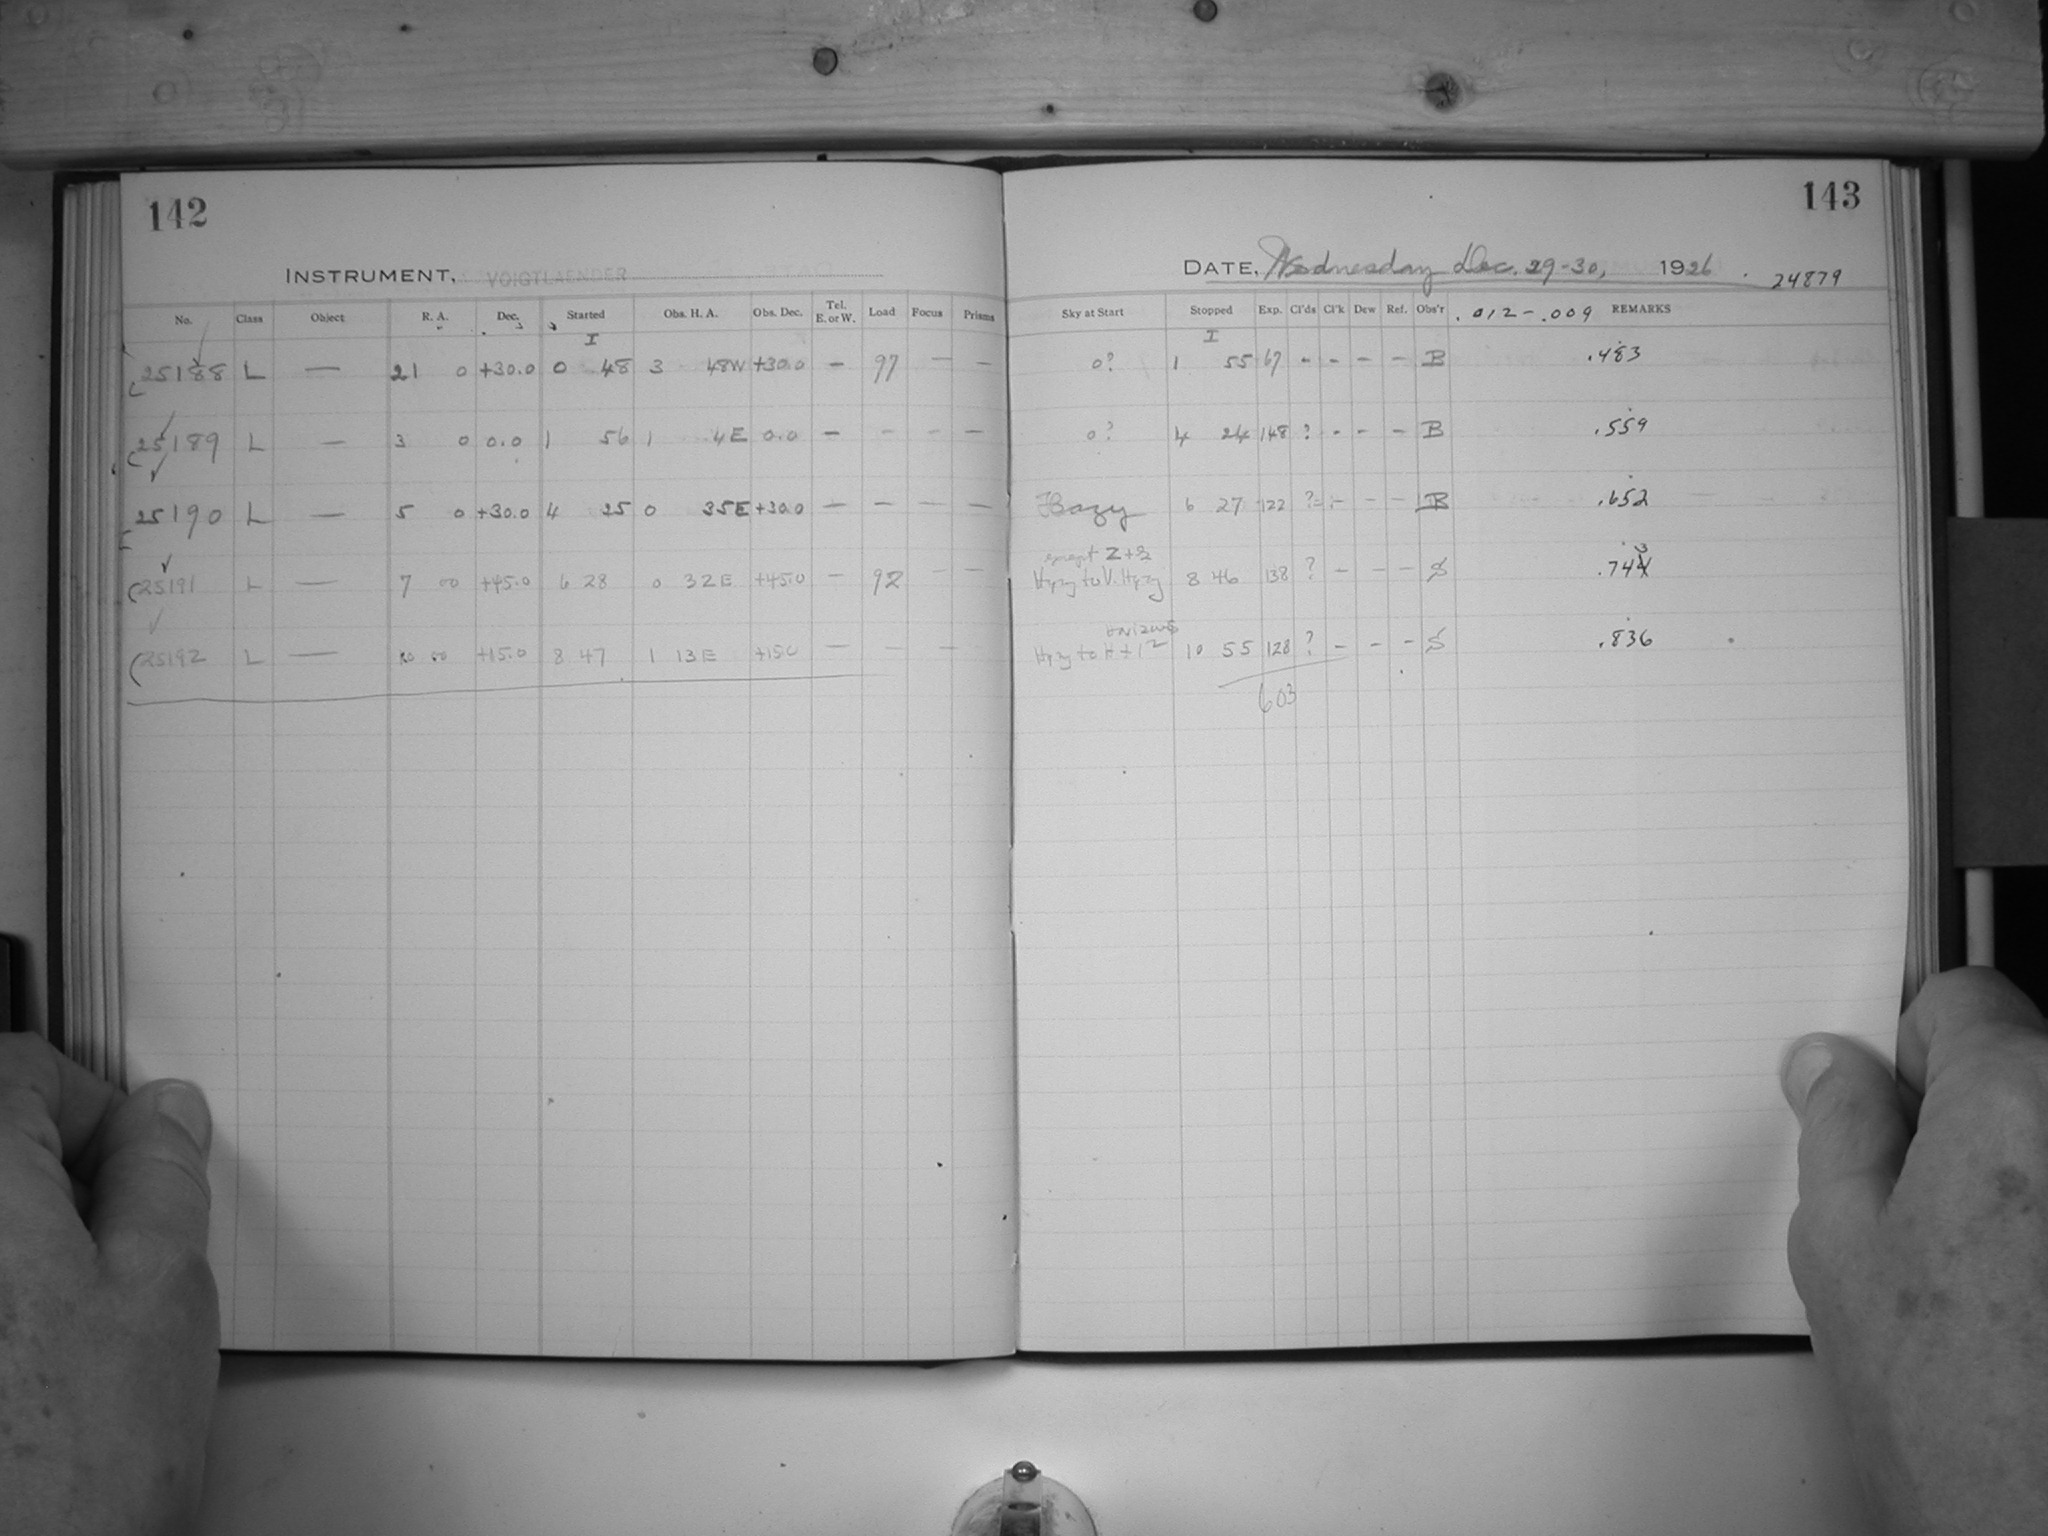 142
INSTRUMENT, VOIGTLAENDER
No. Class Object R. A. Dec. Started Obs. H. A. Obs. Dec. Tel. E. or W. Load Focus Prisms
I
25188 L — 21 0 +30.0 0 48 3 48W +30.0 — 97 — —
25189 L — 3 0 0.0 1 56 1 4E 0.0 — — — —
25190 L — 5 0 +30.0 4 25 0 35E +30.0 — — — —
25191 L — 7 00 +45.0 6 28 0 32E +45.0 — 92 — —
25192 L — 10 00 +15.0 8 47 1 13E +15.0 — — —
143
DATE, Wednesday Dec. 29-30, 1926 24879
Sky at Start Stopped Exp. Cl'ds Cl'k Dew Ref. Obs'r .012-.009 REMARKS
I
0? 1 55 67 - - - - B .483
0? 4 24 148 ? - - - B .559
Hazy 6 27 122 ? - - - B .652
except Z+2 3
Hazy to V. Hazy 8 46 138 ? - - - S .744
horizons
Hazy to H + 1 2 10 55 128 ? - - - S .836
603